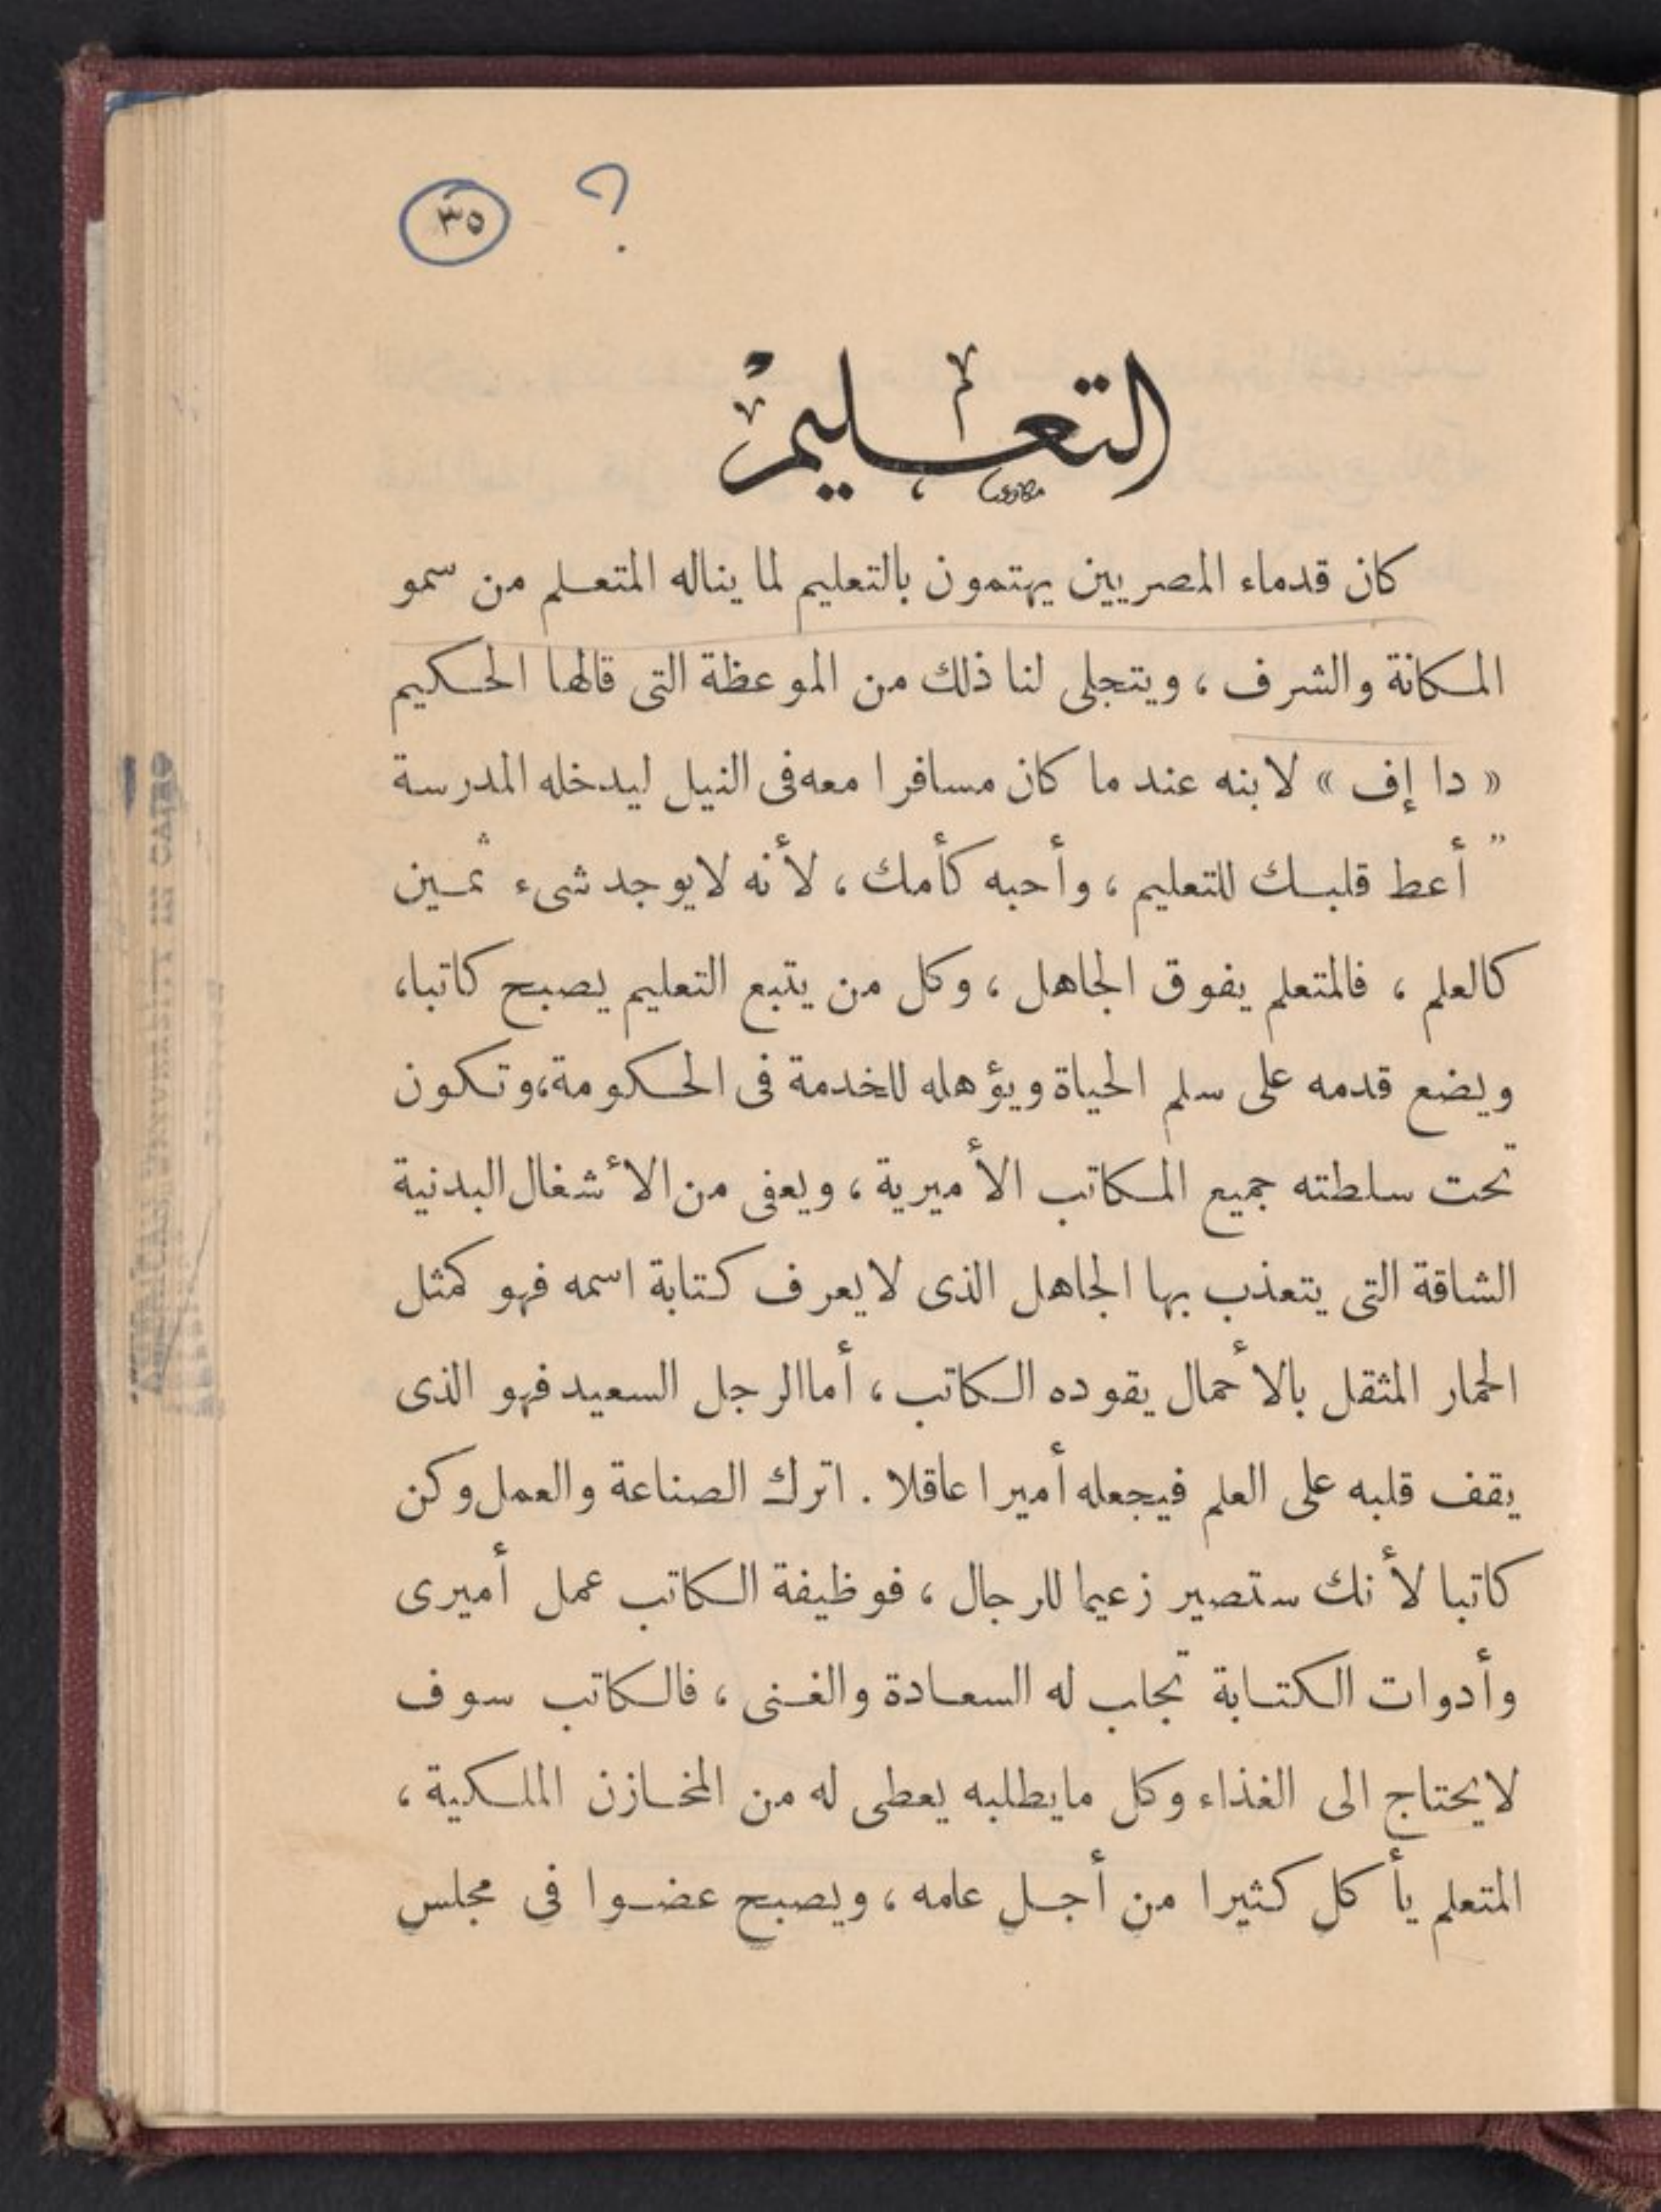 ؟ ٣٥
التعليم
كان قدماء المصريين يهتمون بالتعليم لما يناله المتعلم من سمو
المكانة والشرف ، ويتجلى لنا ذلك من الموعظة التى قالها الحكيم
« دا إف » لابنه عند ما كان مسافرا معه فى النيل ليدخله المدرسة
" أعط قلبك للتعليم ، وأحبه كأمك ، لأنه لايوجد شىء ثمين
كالعلم ، فالمتعلم يفوق الجاهل ، وكل من يتبع التعليم يصبح كاتبا،
ويضع قدمه على سلم الحياة ويؤهله للخدمة فى الحكومة،وتكون
تحت سلطته جميع المكاتب الأميرية ، ويعفى من الأشغال البدنية
الشاقة التى يتعذب بها الجاهل الذى لايعرف كتابة اسمه فهو كمثل
الحمار المثقل بالأحمال يقوده الكاتب ، أما الرجل السعيد فهو الذى
يقف قلبه على العلم فيجعله أميرا عاقلا . اترك الصناعة والعمل وكن
كاتبا لأنك ستصير زعيما للرجال ، فوظيفة الكاتب عمل أميرى
وأدوات الكتابة تجلب له السعادة والغنى ، فالكاتب سوف
لايحتاج الى الغذاء وكل مايطلبه يعطى له من المخازن الملكية ،
المتعلم يأكل كثيرا من أجل علمه ، ويصبح عضوا فى مجلس